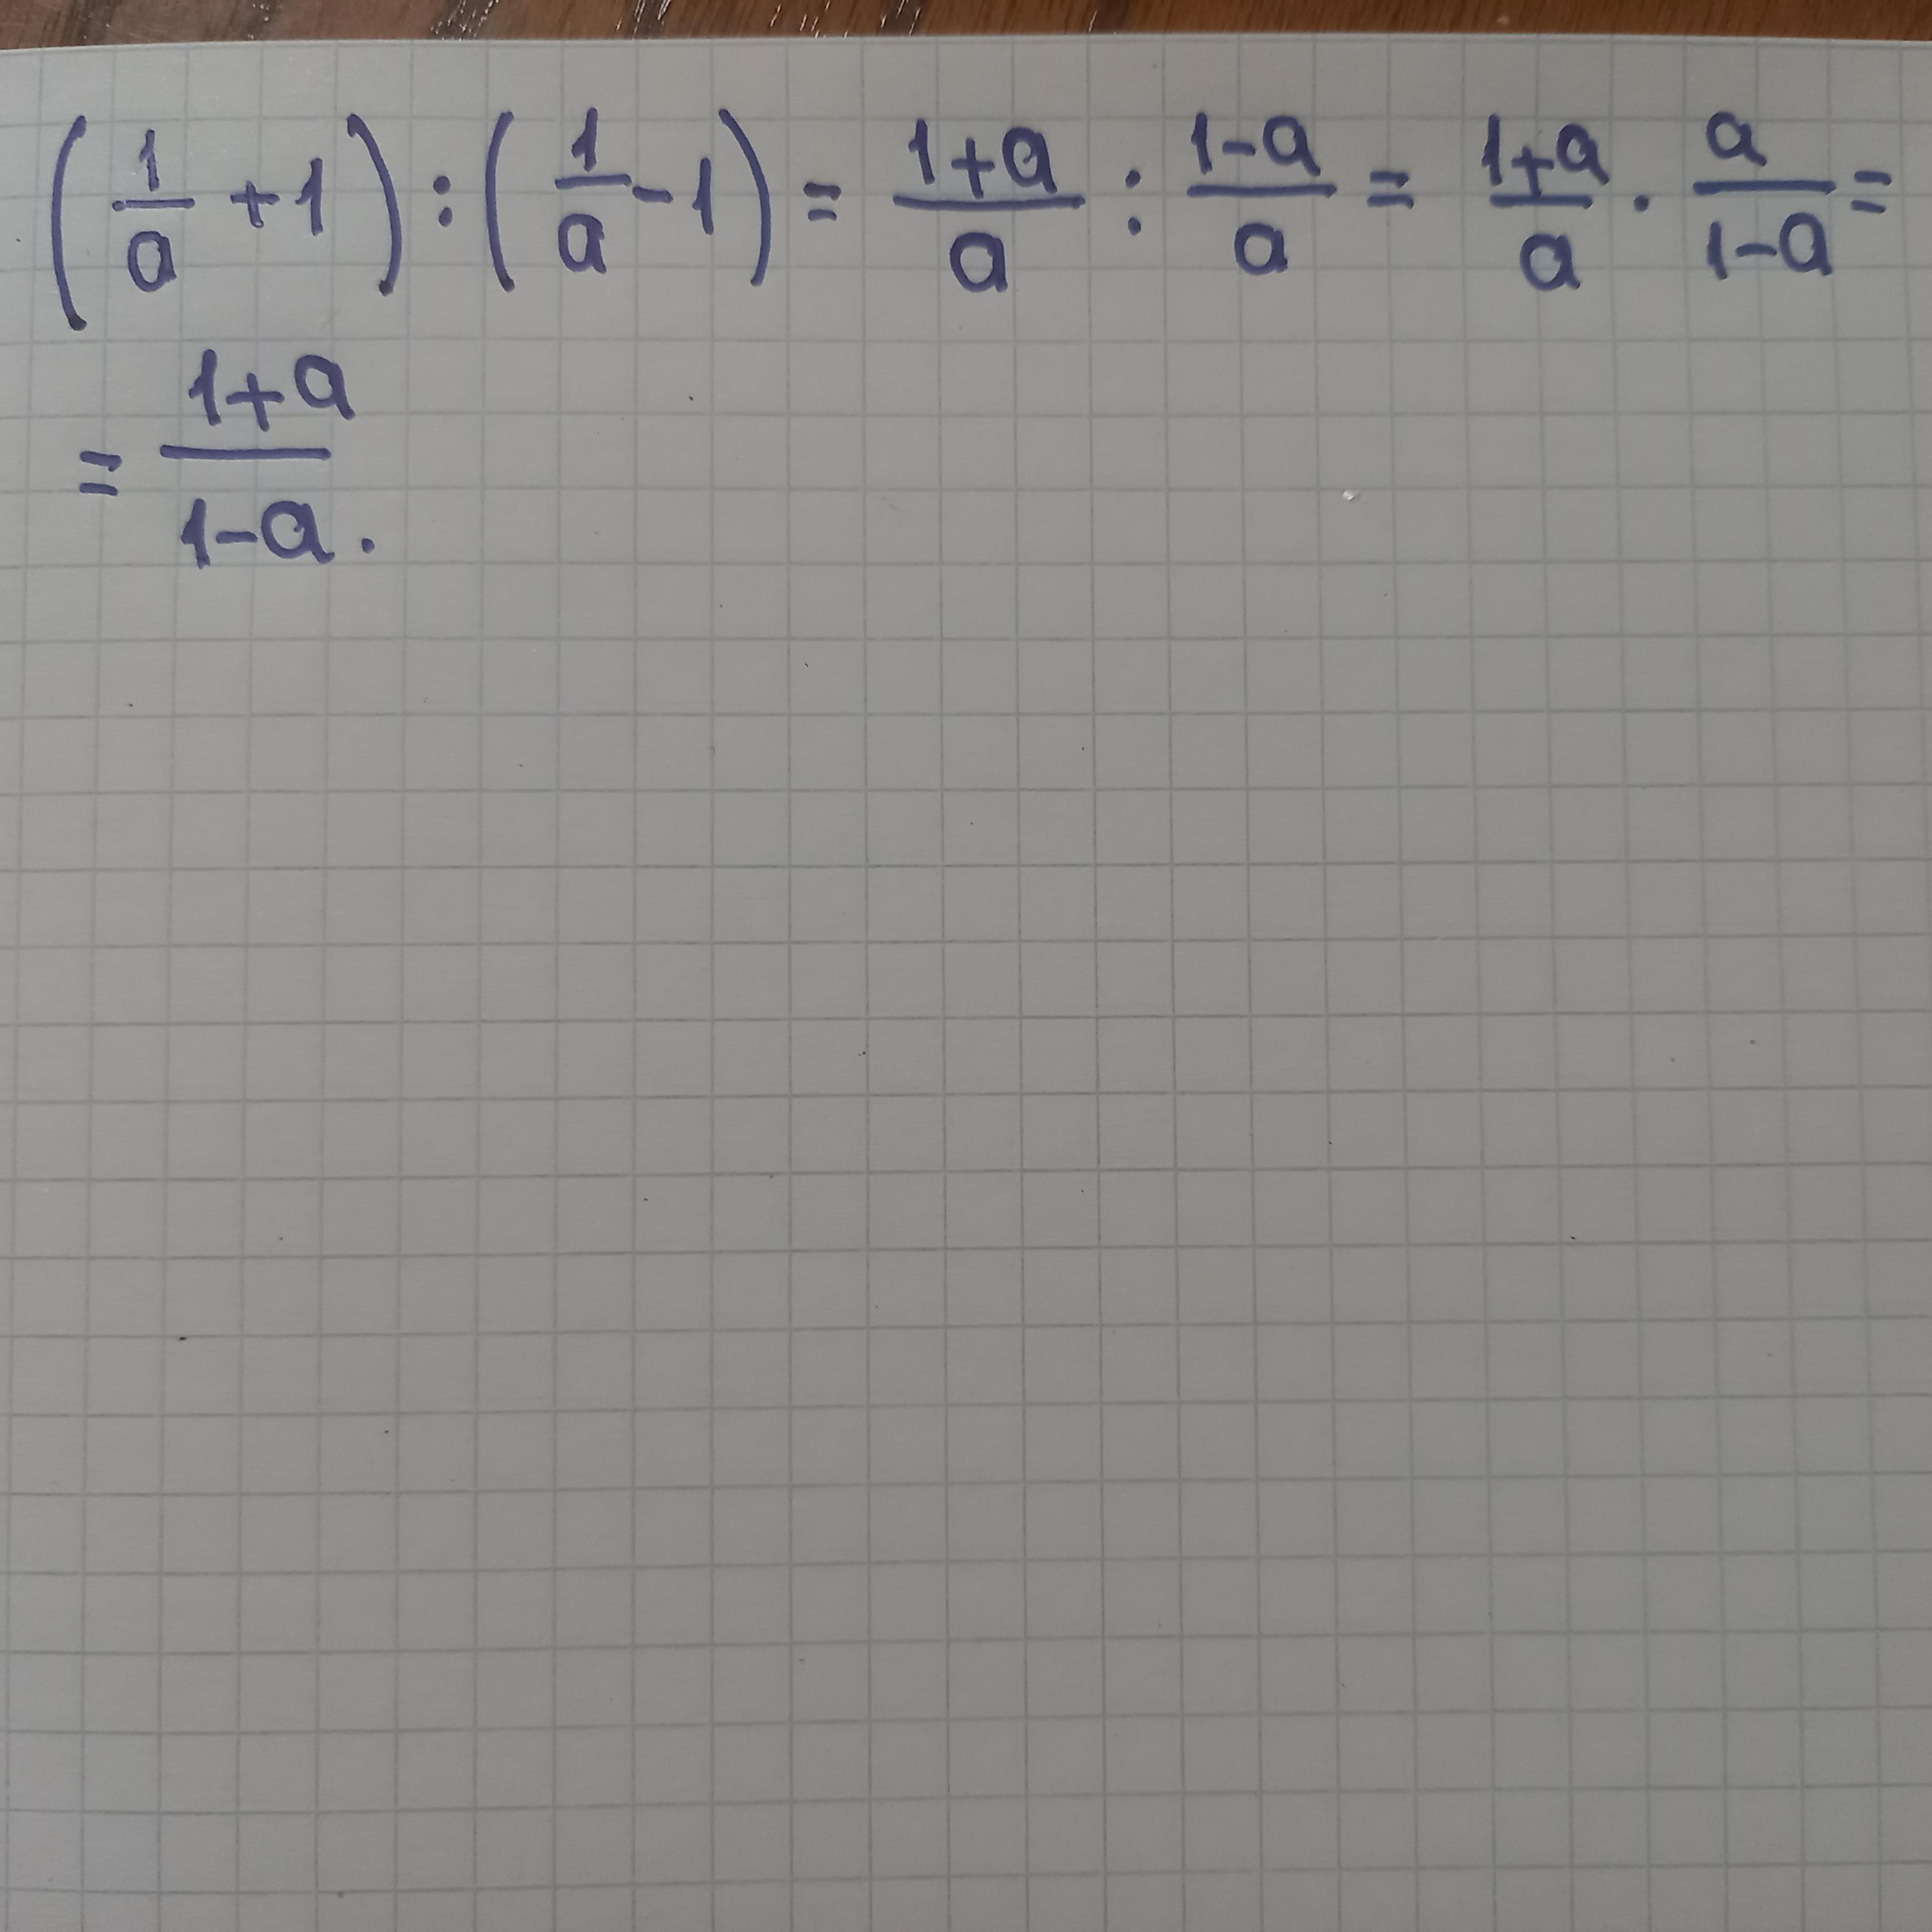 (1/a + 1) : (1/a - 1) = (1+a)/a : (1-a)/a = (1+a)/a · a/(1-a) =
= (1+a)/(1-a).